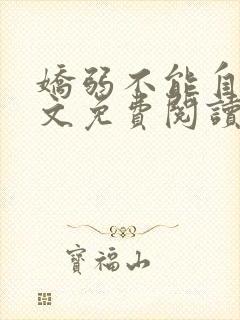 嬌弱不能自
文免費閱讀
寶福山